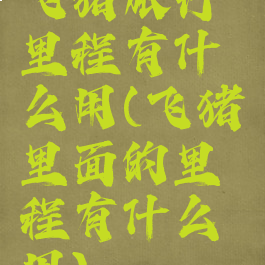 飞猪旅行
里程有什
么用(飞猪
里面的里
程有什么
用)